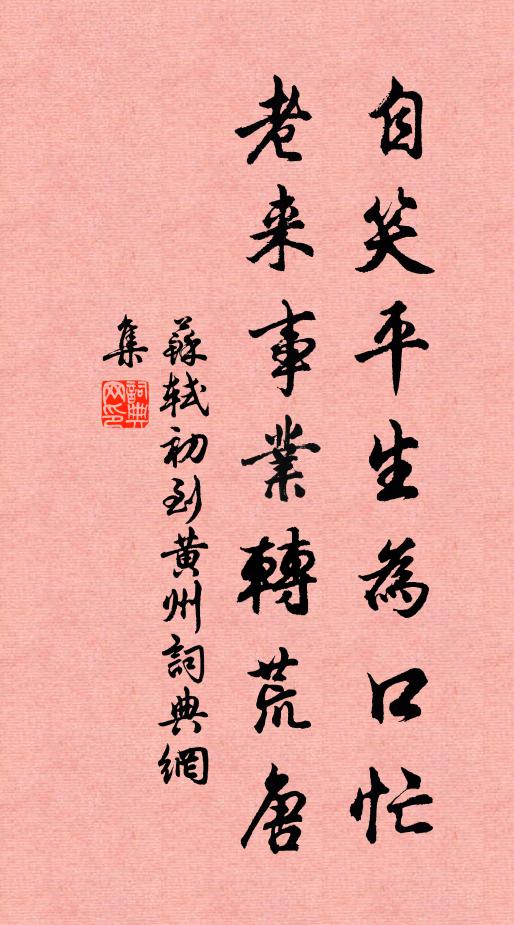 自笑平生為口忙
老来事業轉荒唐
蘇軾初到黄州詞典網
集
詞典
网印